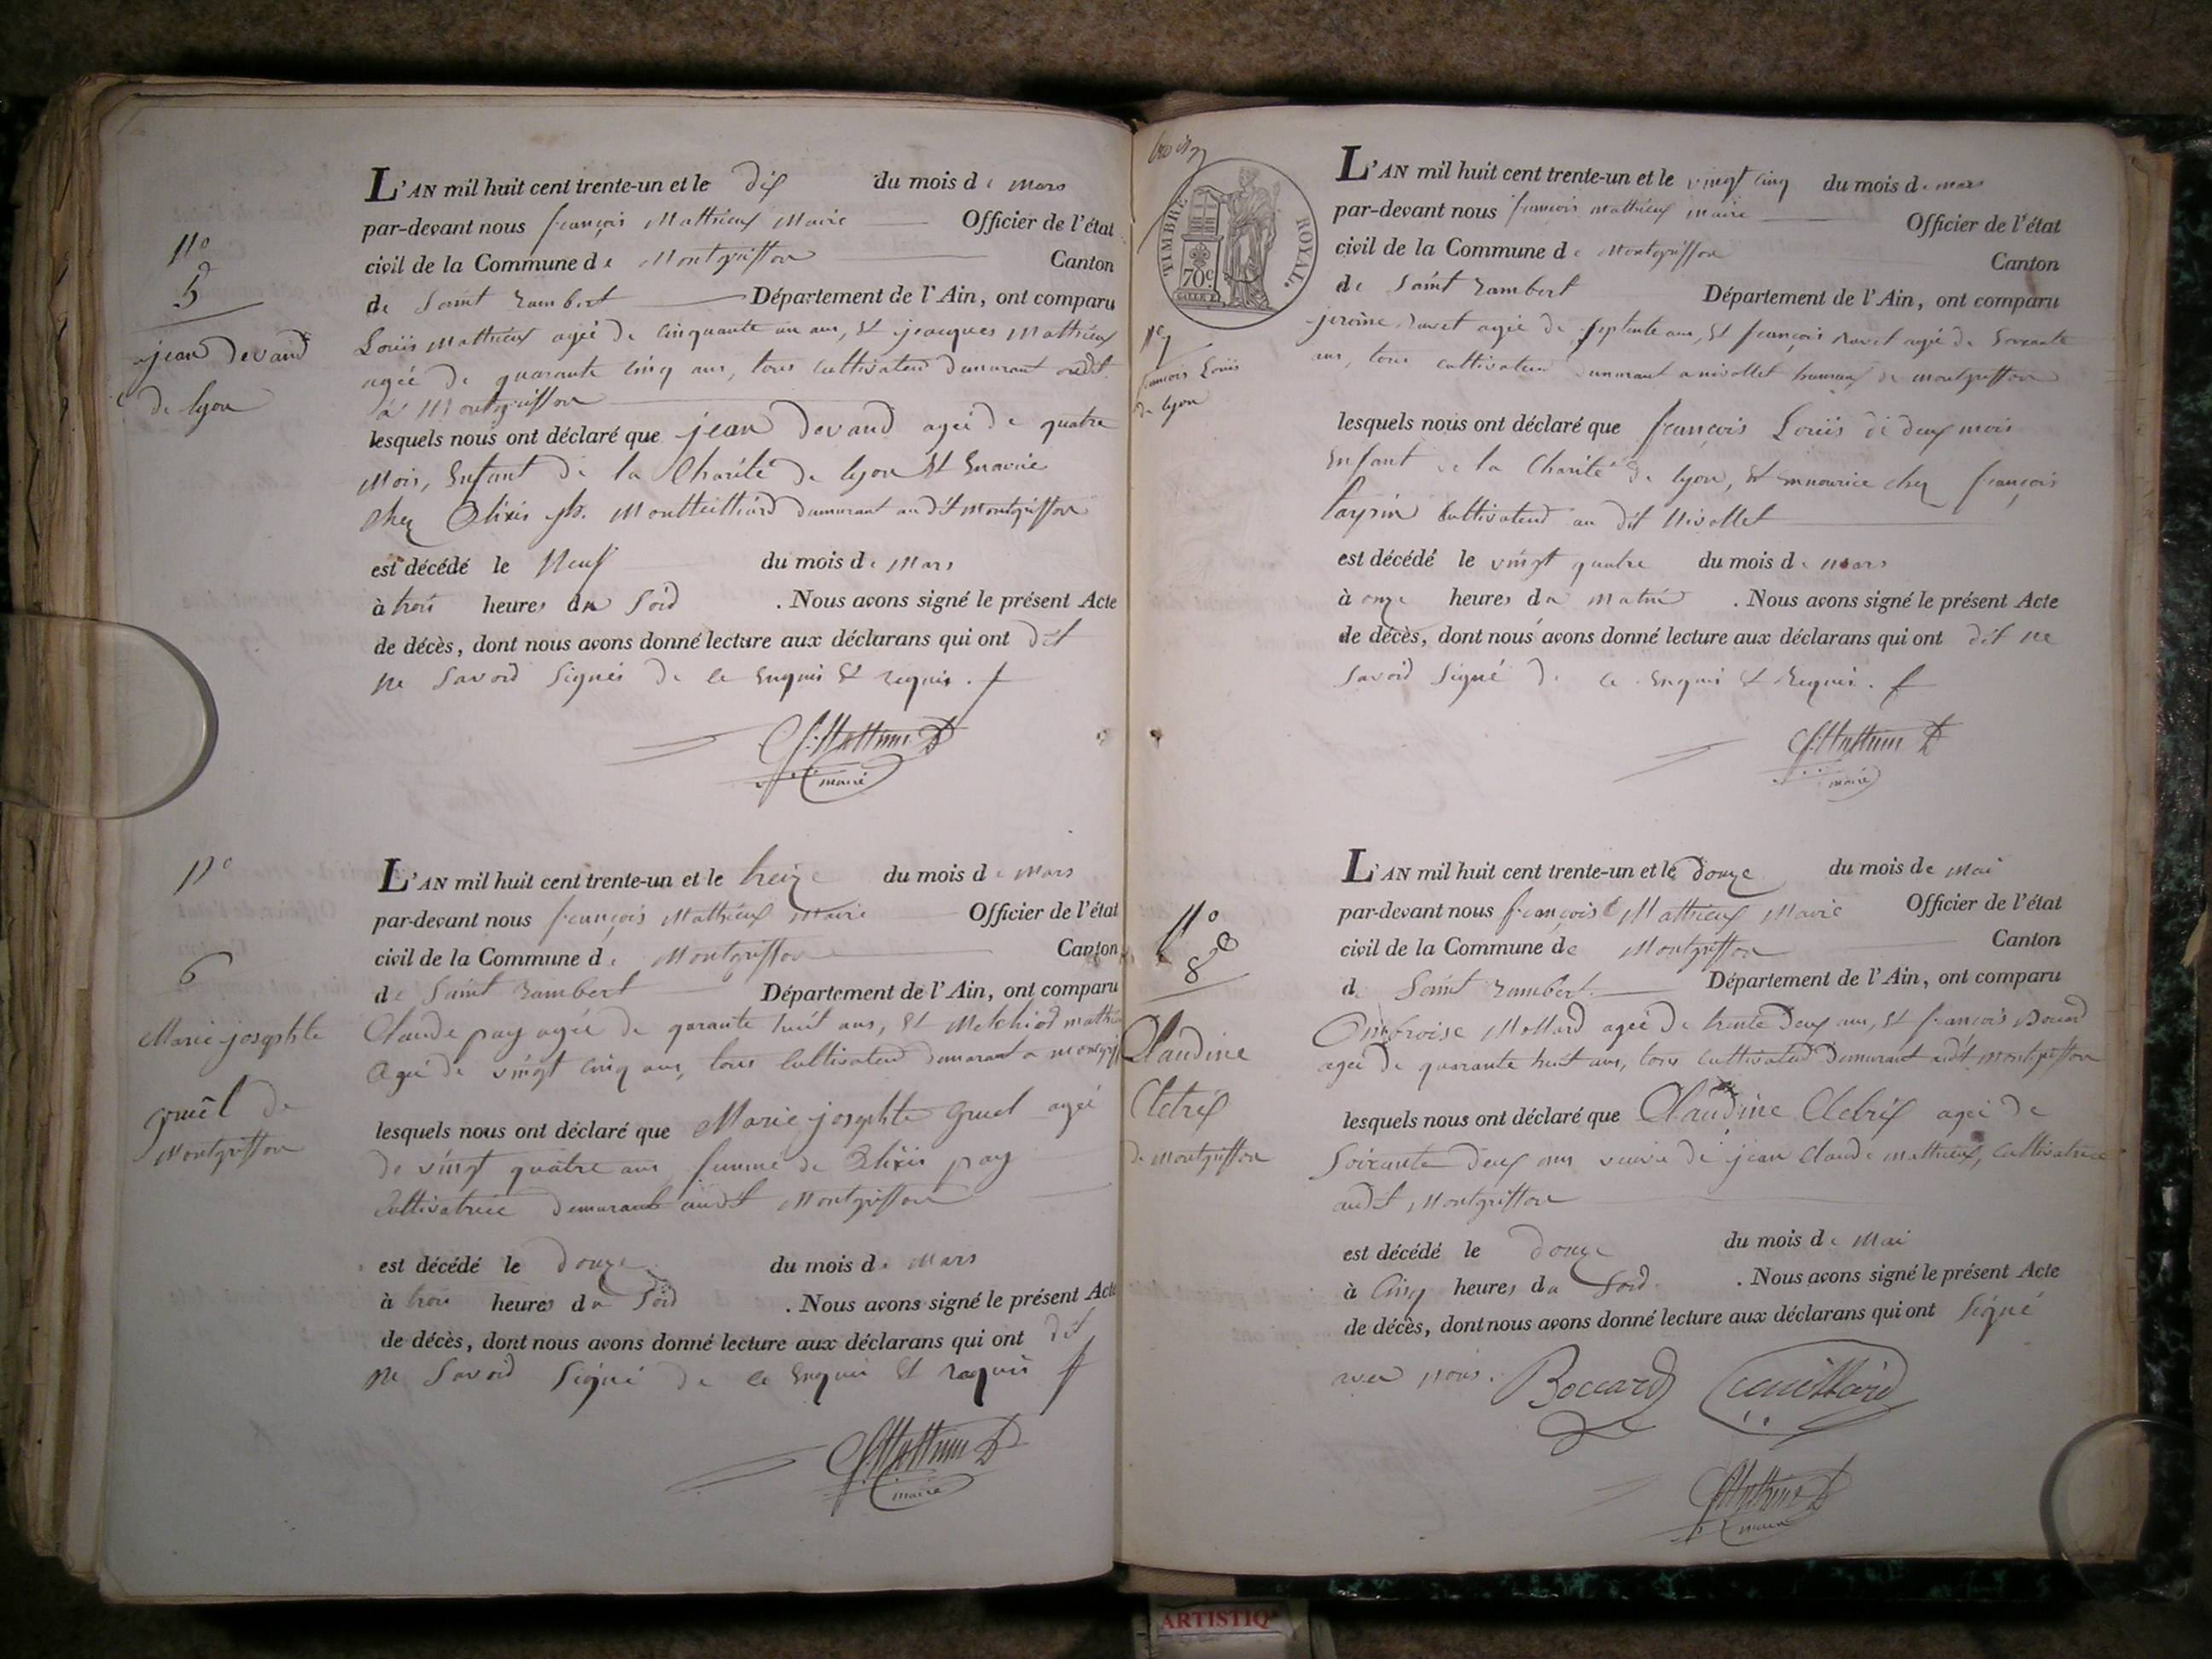 N.o
5
jean devaud
de lyon
L'AN mil huit cent trente-un et le dix du mois de mars
par-devant nous françois Mathieux Maire Officier de l'état
civil de la Commune de Montgriffon Canton
de Saint Rambert Département de l'Ain, ont comparu
Loüis Mathieux agée de cinquante un ans, et jeacques Mathieux
agée de quarante cinq ans, tous cultivateur demurant audit
à Montgriffon
lesquels nous ont déclaré que jean devaud ageé de quatre
Mois, Enfant de la Charité de lyon et
chez Elixis Montteilliard demurant au dit Montgriffon
est décédé le Neuf du mois de Mars
à trois heures du Soir . Nous avons signé le présent Acte
de décès, dont nous avons donné lecture aux déclarans qui ont dit
ne Savoir Signés de ce Enquis et requis.
maire
N.o
6
Marie josephte
gruel de
Montgriffon
L'AN mil huit cent trente-un et le treize du mois de Mars
par-devant nous françois Mathieux Maire Officier de l'état
civil de la Commune de Montgriffon Canton
de Saint Rambert Département de l'Ain, ont comparu
Claude pay agée de qarante huit ans, et Melchiod
Ageé de vingt cinq ans, tous Cultivateur demurant a
lesquels nous ont déclaré que Marie josephte Gruel ageé
de vingt quatre ans femme de Elixis pay
Cultivatrice demurant audit Montgriffon
est décédé le douze du mois de Mars
à trois heures du Soir . Nous avons signé le présent Acte
de décès, dont nous avons donné lecture aux déclarans qui ont dit
ne Savoir Signé de ce Enquis et requis
maire
TIMBRE ROYAL.
70c
N.o 7
françois Loüis
de lyon
L'AN mil huit cent trente-un et le vingt cinq du mois de mars
par-devant nous francois mathieux maire Officier de l'état
civil de la Commune de Montgriffon Canton
de Saint Rambert Département de l'Ain, ont comparu
jeroime ravet agée de Septente ans, et françois ravet agée de Soixante
ans, tous cultivateur demurant a nivollet hamaux de montgriffon
lesquels nous ont déclaré que françois Loüis de deux mois
Enfant de la Charité de lyon, et ennourice chez françois
Cultivateur au dit Nivollet
est décédé le vingt quatre du mois de mars
à onze heures du matin . Nous avons signé le présent Acte
de décès, dont nous avons donné lecture aux déclarans qui ont dit ne
Savoir Signé de ce Enquis et Requis.
maire
N.o
8
Claudine
Cletrix
de montgriffon
L'AN mil huit cent trente-un et le douze du mois de Mai
par-devant nous françois Mathieux Maire Officier de l'état
civil de la Commune de Montgriffon Canton
de Saint Rambert Département de l'Ain, ont comparu
Ombroise Mollard ageé de trente deux ans, et françois
ageé de quarante huit ans, tous cultivateur demurant audit montgriffon
lesquels nous ont déclaré que Claudine Cletrix ageé de
Soixante deux ans veuve de jean Claude mathieux, Cultivatrice
audit Montgriffon
est décédé le douze du mois de Mai
à Cinq heures du Soir . Nous avons signé le présent Acte
de décès, dont nous avons donné lecture aux déclarans qui ont Signé
avec nous. Boccard
maire
ARTISTIQ